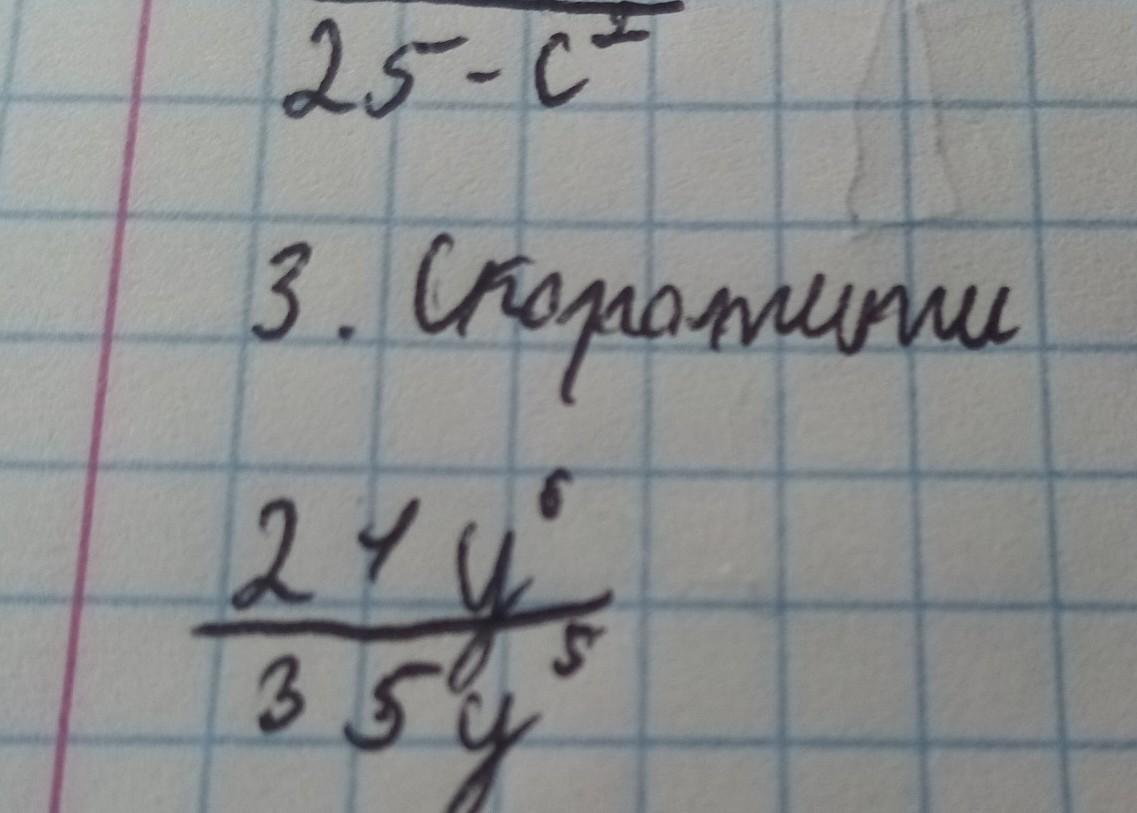 25-c²
3. Скоротити
21y⁶
35y⁵